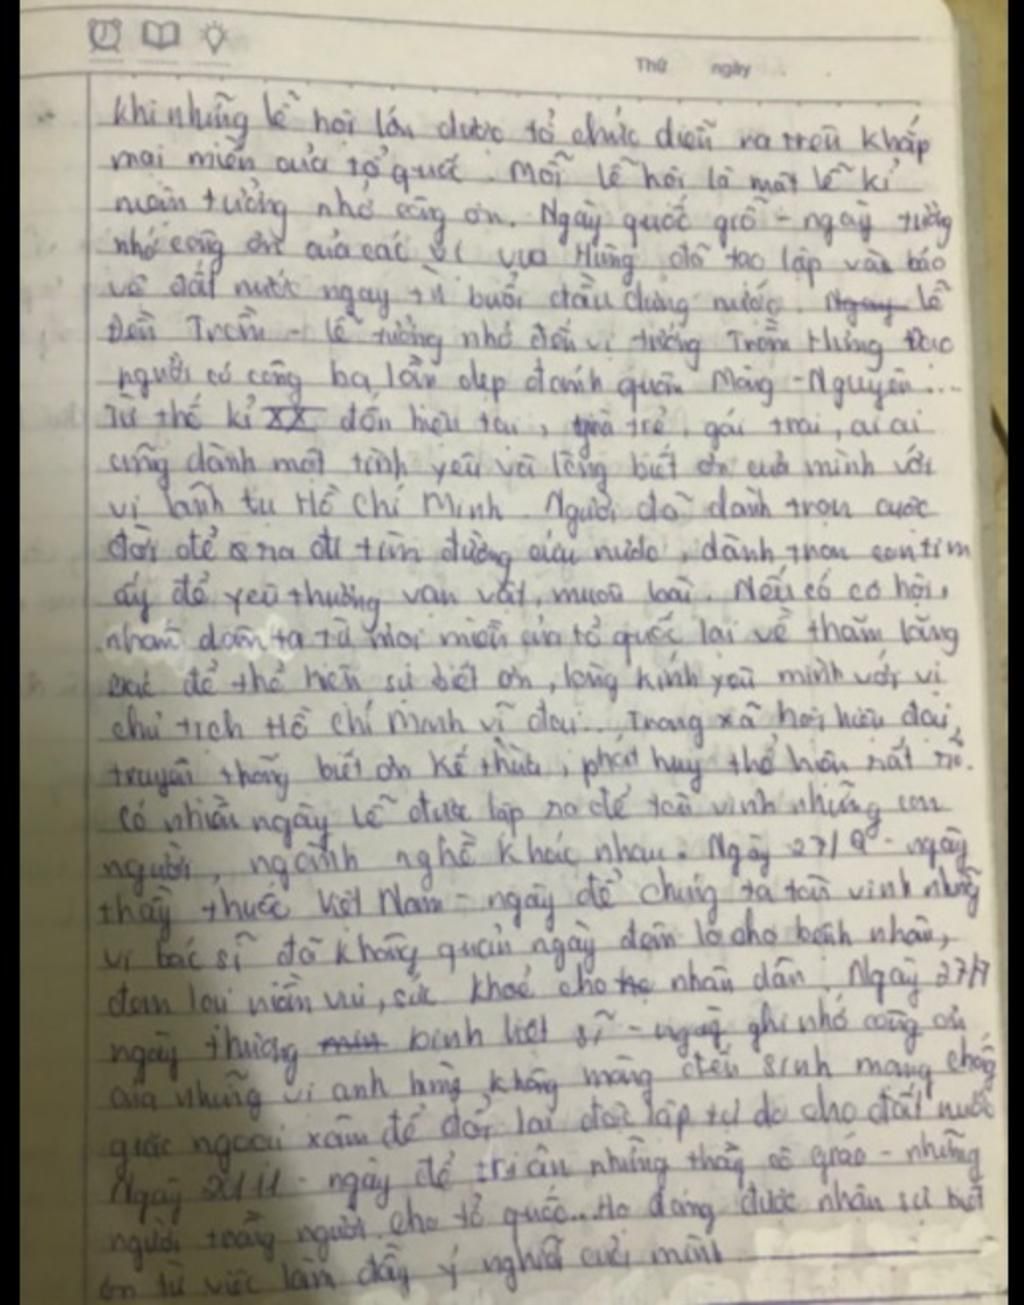 Thứ ngày
khi những lễ hội lớn được tổ chức diễn ra trên khắp
mọi miền của tổ quốc. Mỗi lễ hội là một lễ kỉ
niệm tưởng nhớ công ơn. Ngày quốc giỗ - ngày tưởng
nhớ công ơn của các vị vua Hùng đã tạo lập và bảo
vệ đất nước ngay từ buổi đầu dựng nước. Ngay lễ
Đền Trần - lễ tưởng nhớ đến vị tướng Trần Hưng Đạo
người có công ba lần dẹp đánh quân Mông - Nguyên...
Từ thế kỉ XX đến hiện tại, già trẻ, gái trai, ai ai
cũng dành một tình yêu và lòng biết ơn của mình với
vị lãnh tụ Hồ Chí Minh. Người đã dành trọn cuộc
đời để ra đi tìm đường cứu nước, dành trọn con tim
ấy để yêu thương vạn vật, muôn loài. Nếu có cơ hội,
nhân dân ta từ mọi miền của tổ quốc lại về thăm lăng
Bác để thể hiện sự biết ơn, lòng kính yêu mình với vị
chủ tịch Hồ Chí Minh vĩ đại... Trong xã hội hiện đại,
truyền thống biết ơn kế thừa, phát huy thể hiện rất rõ.
Có nhiều ngày lễ được lập ra để tôn vinh những con
người, ngành nghề khác nhau. Ngày 27/2 - ngày
thầy thuốc Việt Nam - ngày để chúng ta tôn vinh những
vị bác sĩ đã không quản ngày đêm lo cho bệnh nhân,
đem lại niềm vui, sức khoẻ cho nhân dân. Ngày 27/7
ngày thương binh liệt sĩ - ngày ghi nhớ công ơn
của những vị anh hùng không màng đến sinh mạng chống
giặc ngoại xâm để đổi lại độc lập tự do cho đất nước
Ngày 20/11 - ngày để tri ân những thầy cô giáo - những
người trồng người cho tổ quốc... Họ đáng được nhận sự biết
ơn từ việc làm đầy ý nghĩa của mình